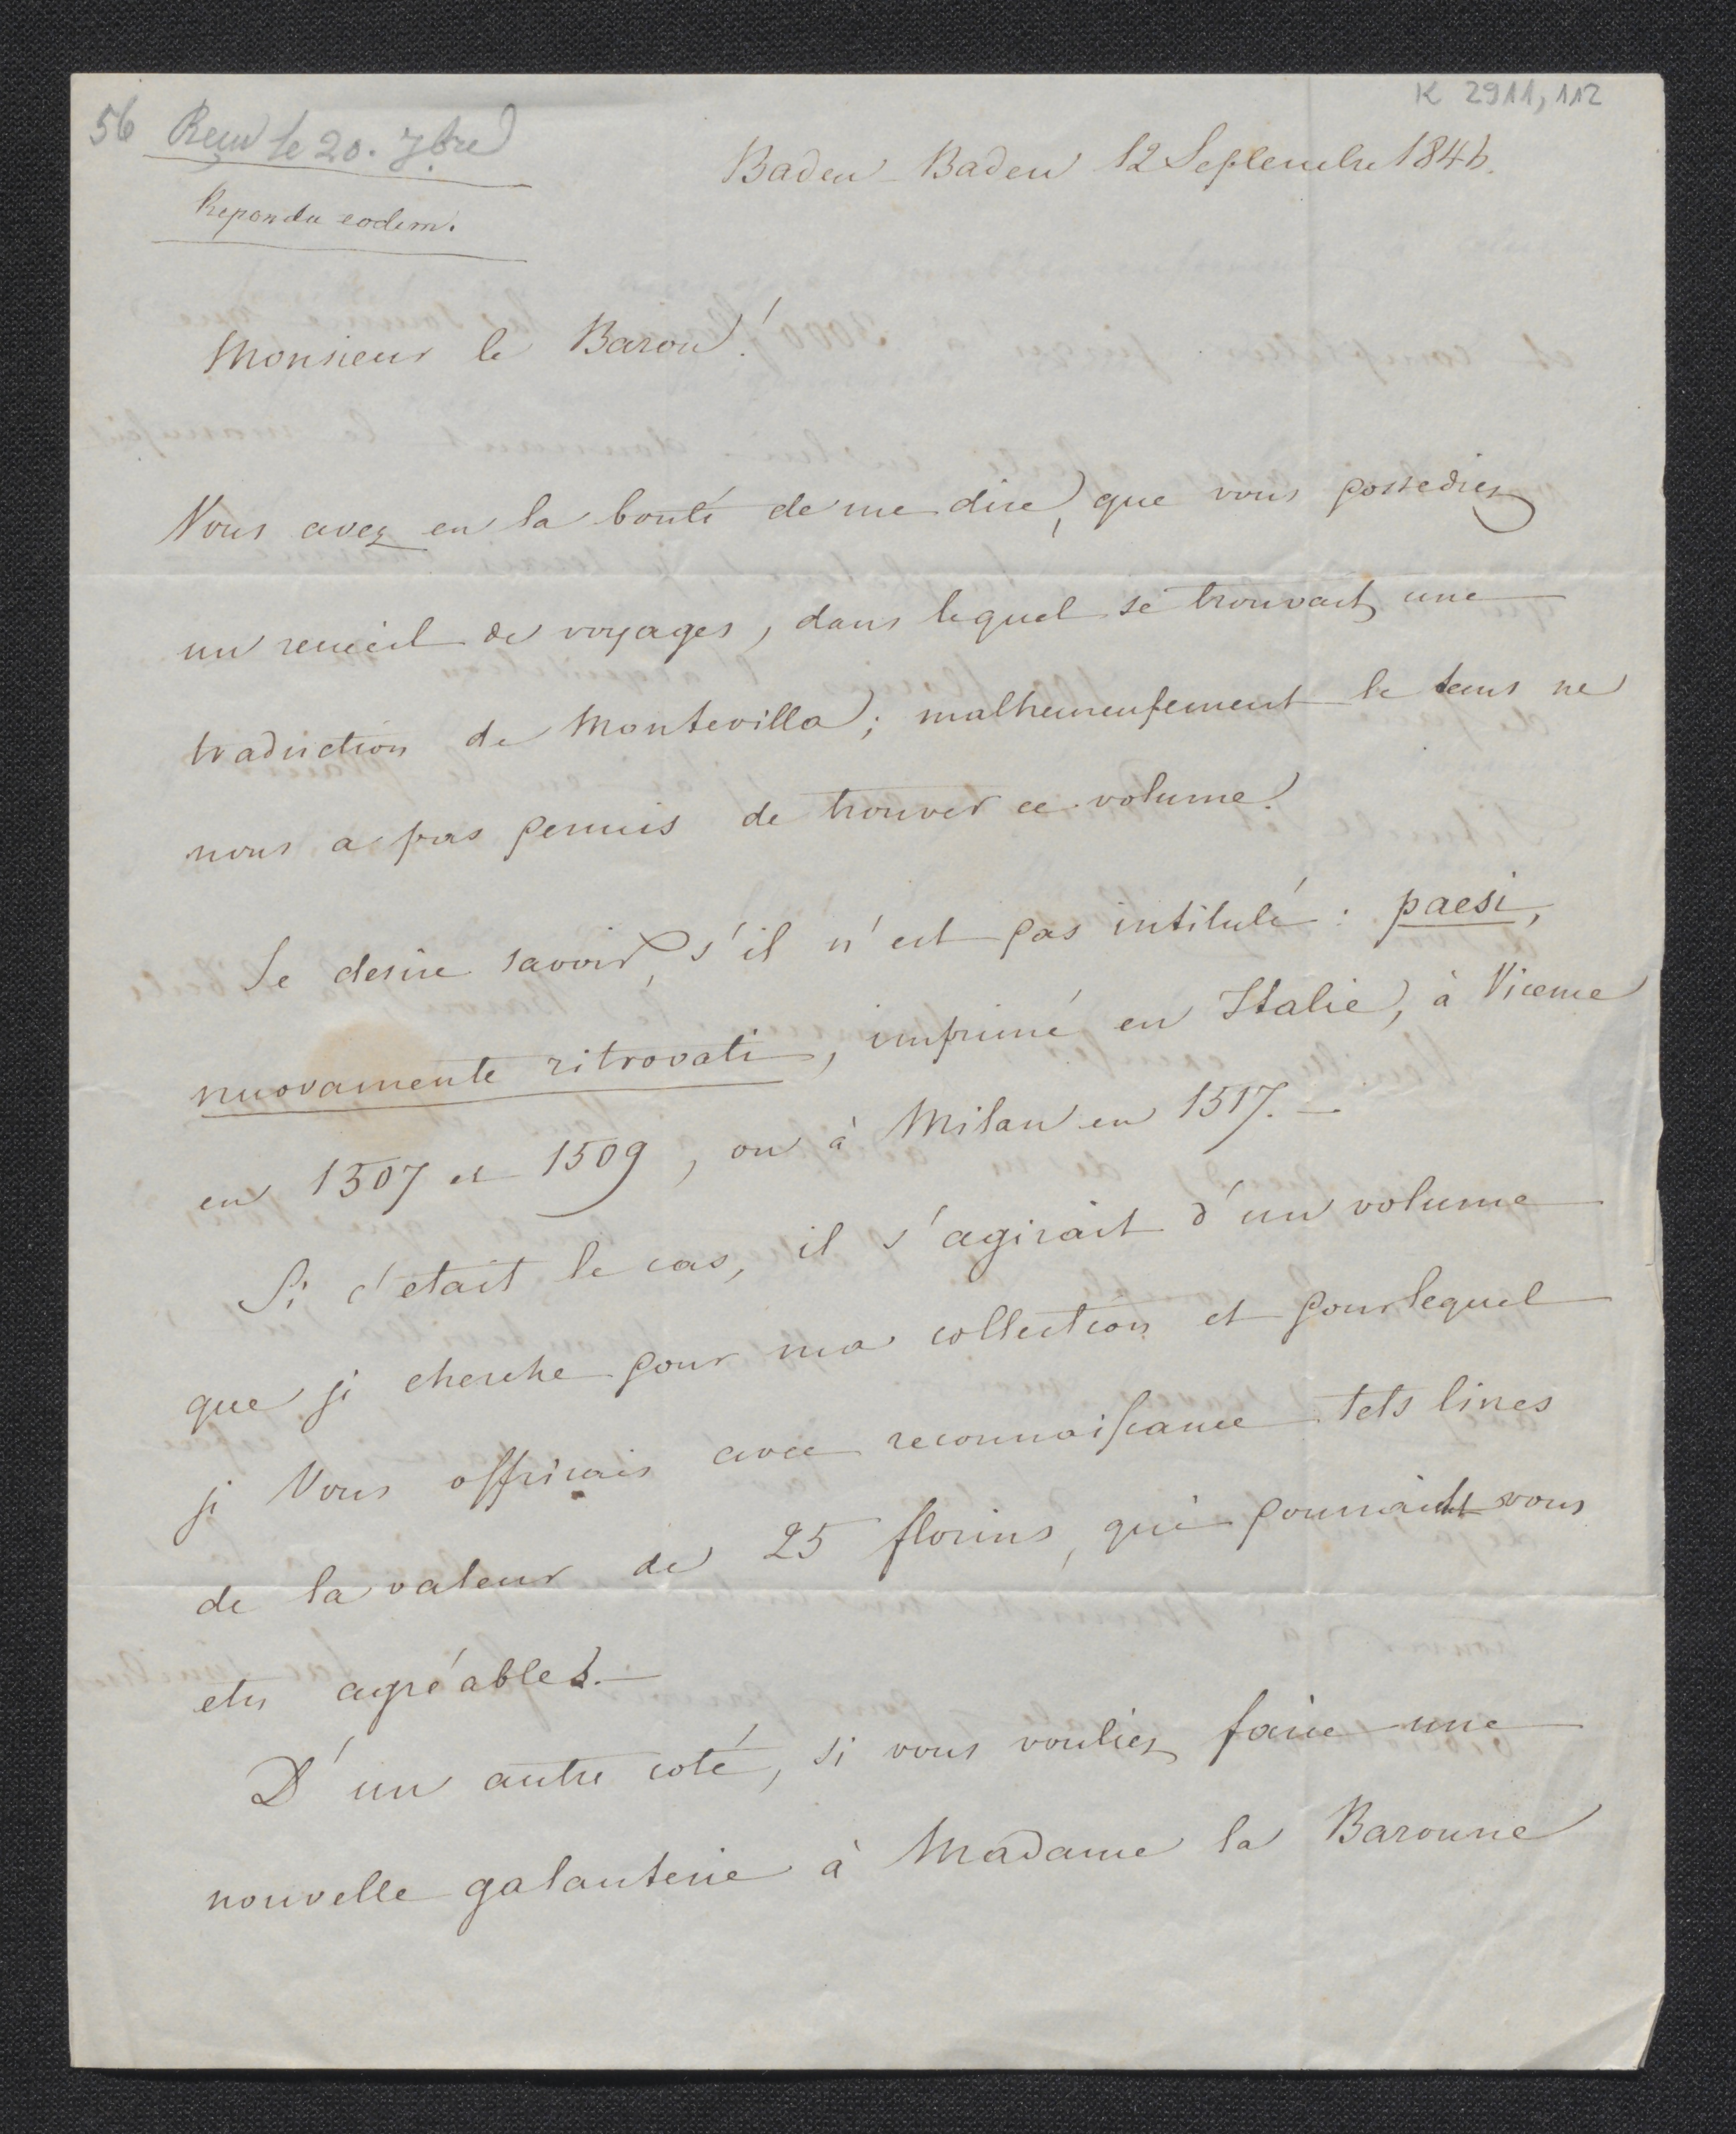 K 2911, 112
56 Reçu le 20. 7bre
Baden-Baden 12 Septembre 1846.
Repondu eodem.
Monsieur le Baron!
Vous avez eu la bonté de me dire, que vous possediez
un receuil de voyages, dans lequel se trouvait une
traduction de Montevilla; malheureusement le tems ne
nous a pas permis de trouver ce volume.
Je desire savoir, s'il n'est pas intitulé: paesi,
nuovamente ritrovati, imprimé en Italie, à Vicence
en 1507 et 1509, ou à Milan en 1517. —
Si c'etait le cas, il s'agirait d'un volume
que je cherche pour ma collection et pour lequel
je Vous offrirais avec reconnaissance tels livres
de la valeur de 25 florins, qui pourraient vous
etre agréables. —
D'un autre coté, si vous vouliez faire une
nouvelle galanterie à Madame la Baronne